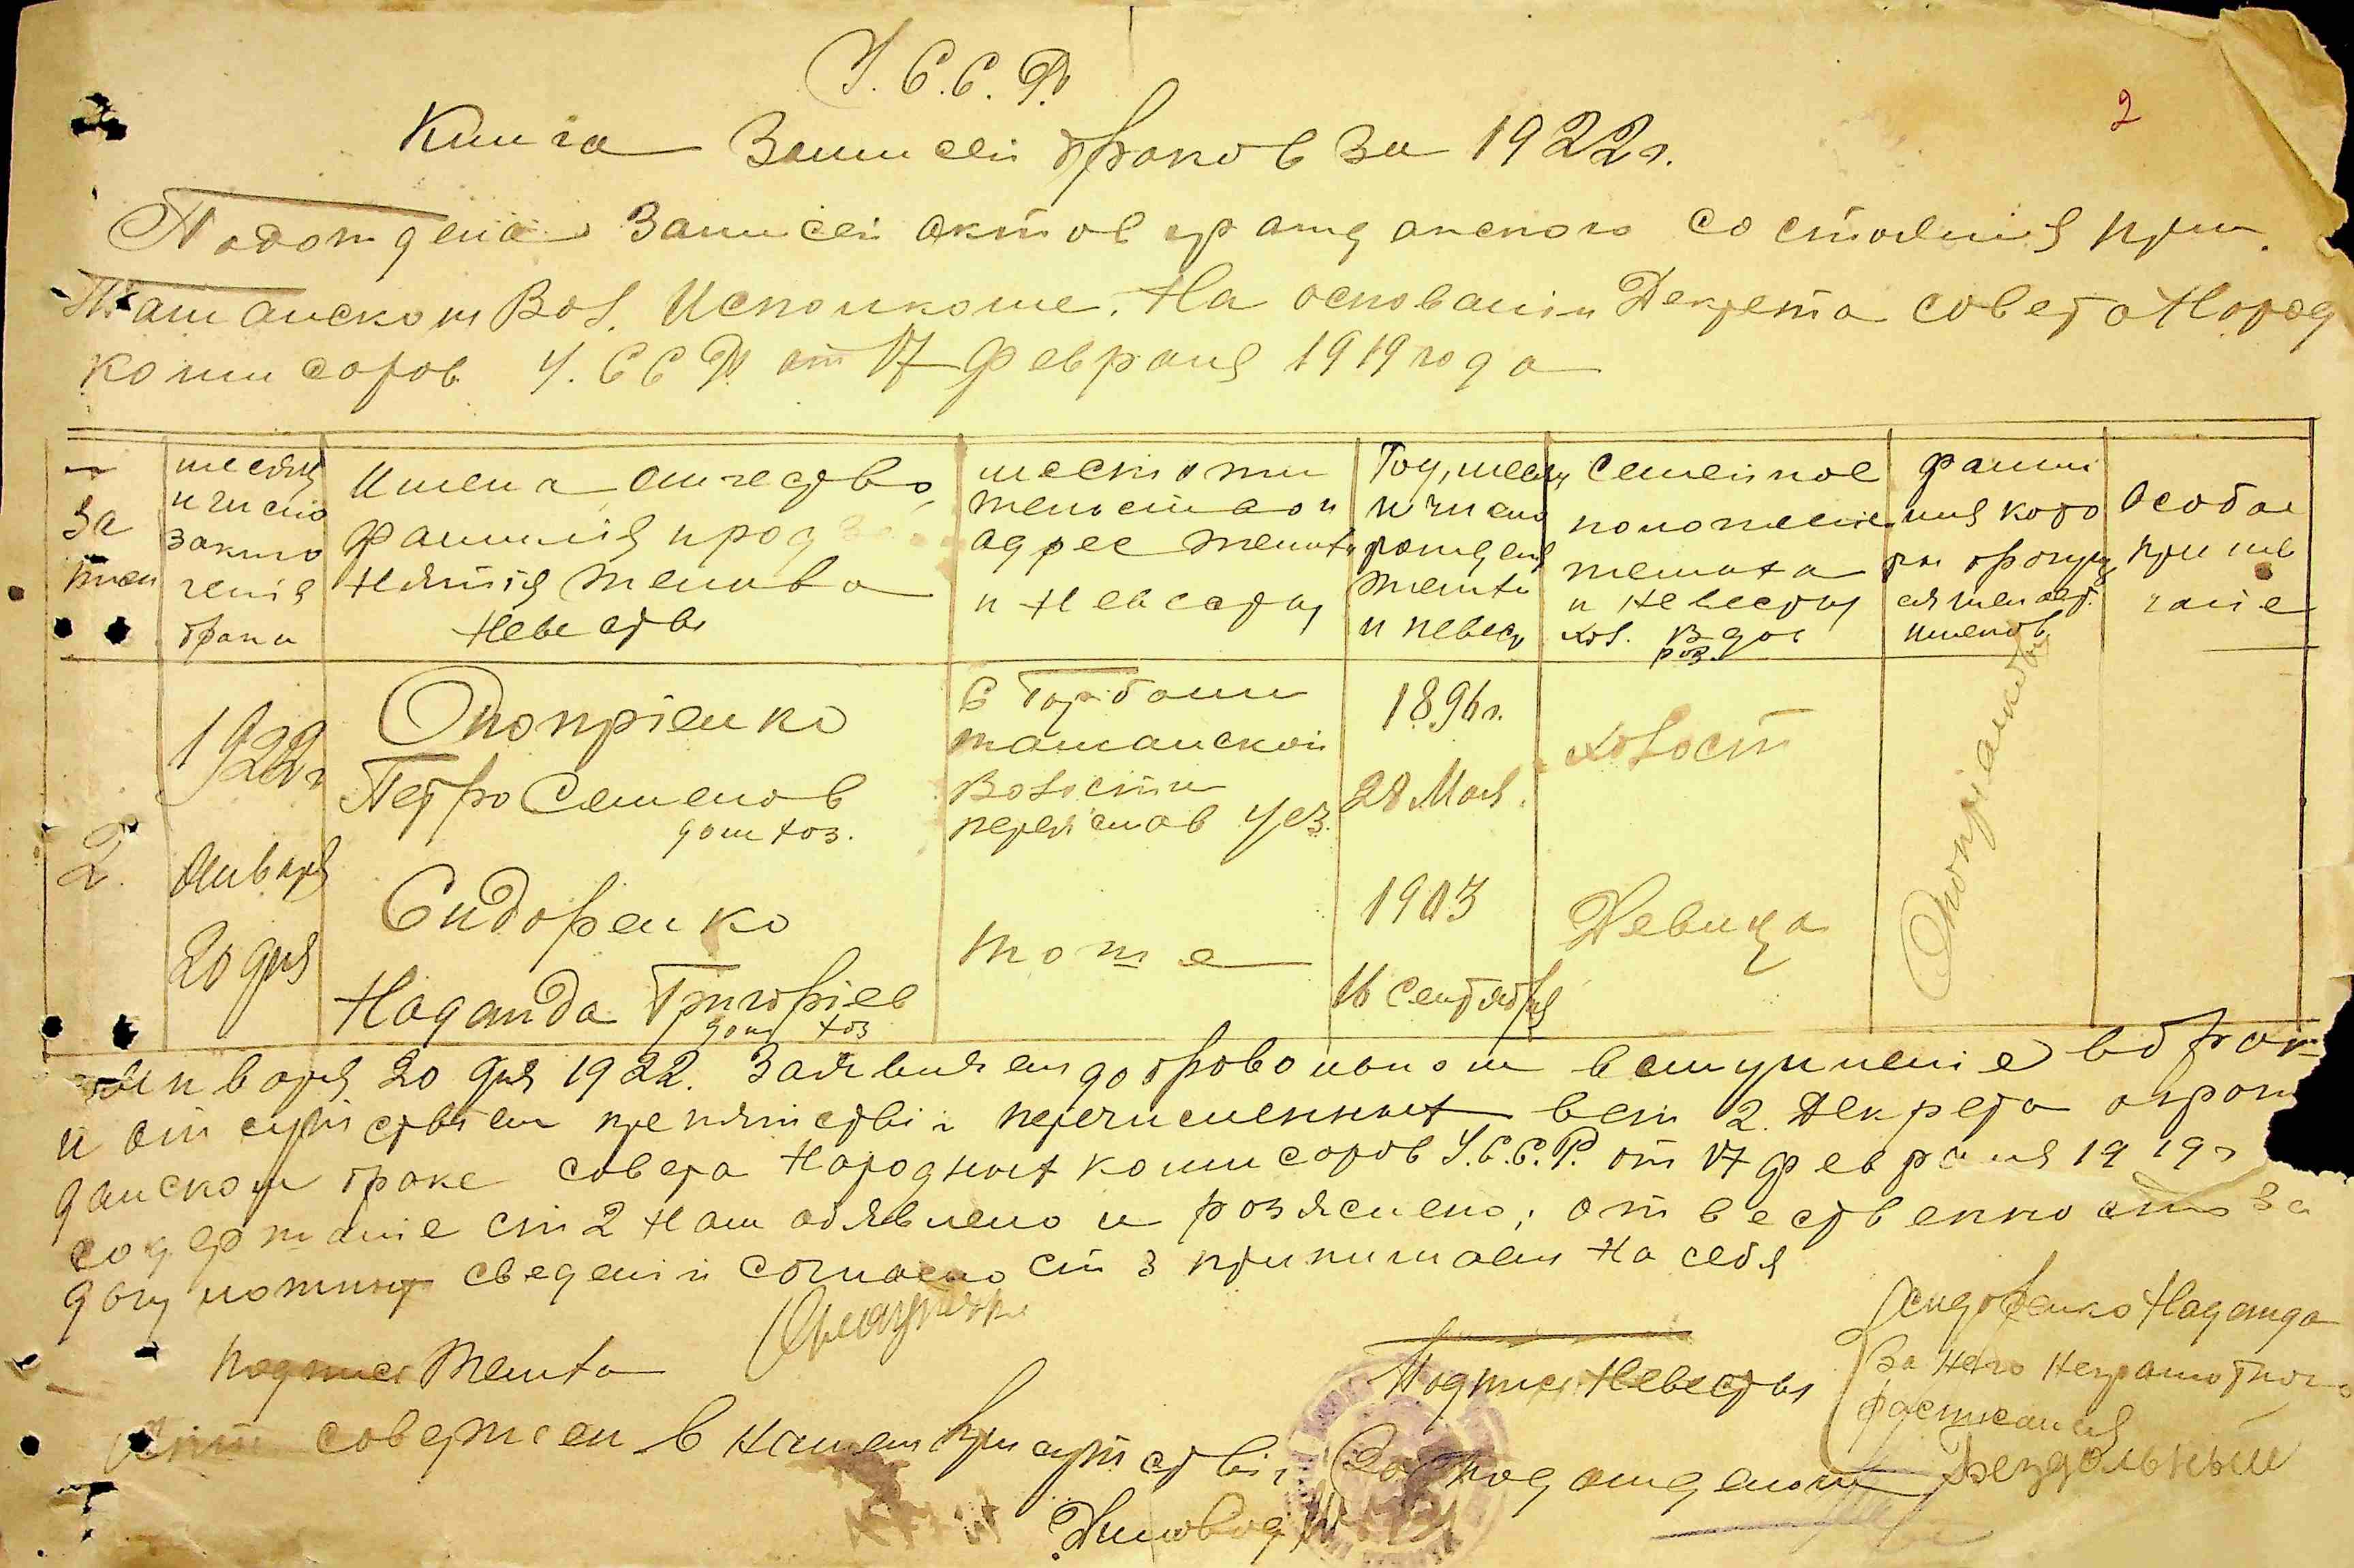 У.С.С.Р.
2
Книга Записей браков за 1922 г.
Подотдела Записей актов гражданского состояния при
Ташанском Вол. Исполкоме. На основании Декрета совета Народ
комисаров У.ССР от 17 февраля 1919 года
№
За
писи
месяц
и число
заклю
ченія
брака
Имена отчество,
фамилія и прод
нятія жениха
Невесты
место жи
тельства и
адрес жениха
и Невесты
Год, месяц
и число
рожденія
жениха
и невесты
Семейное
положеніе
жениха
и невесты
хол. вдов
роз.
фами
лия кото
ры брачущ
имянов
Особое
приме
чаніе
2.
1922 г
Января
20 дня
Онопріенко
Петро Семенов
дом хоз.
Сидоренко
Надежда Григоріев
дом хоз
С Горбани
ташанской
Волости
переяслав уез.
тоже
1896 г.
28 Мая.
1903
16 Сентября
холост
Девица
Января 20 дня 1922. Заявляем добровольном вступленіе в брак
и отсутствіем препятствій перечисленных в ст 2. Декрета о граж
данском браке совета Народных комисаров У.С.С.Р. от 17 февраля 1919 г
содержаніе ст 2 Нам обявлено и розяснено; ответственность за
дачу ложных сведеній согласно ст 3 принимаем на себя
подпись Жениха
Подпись Невесты
Сидоренко Надежда
За него неграмотного
росписался
Бездольный
Акт совершен в нашем присутствіи Зав подотделом
Диловод